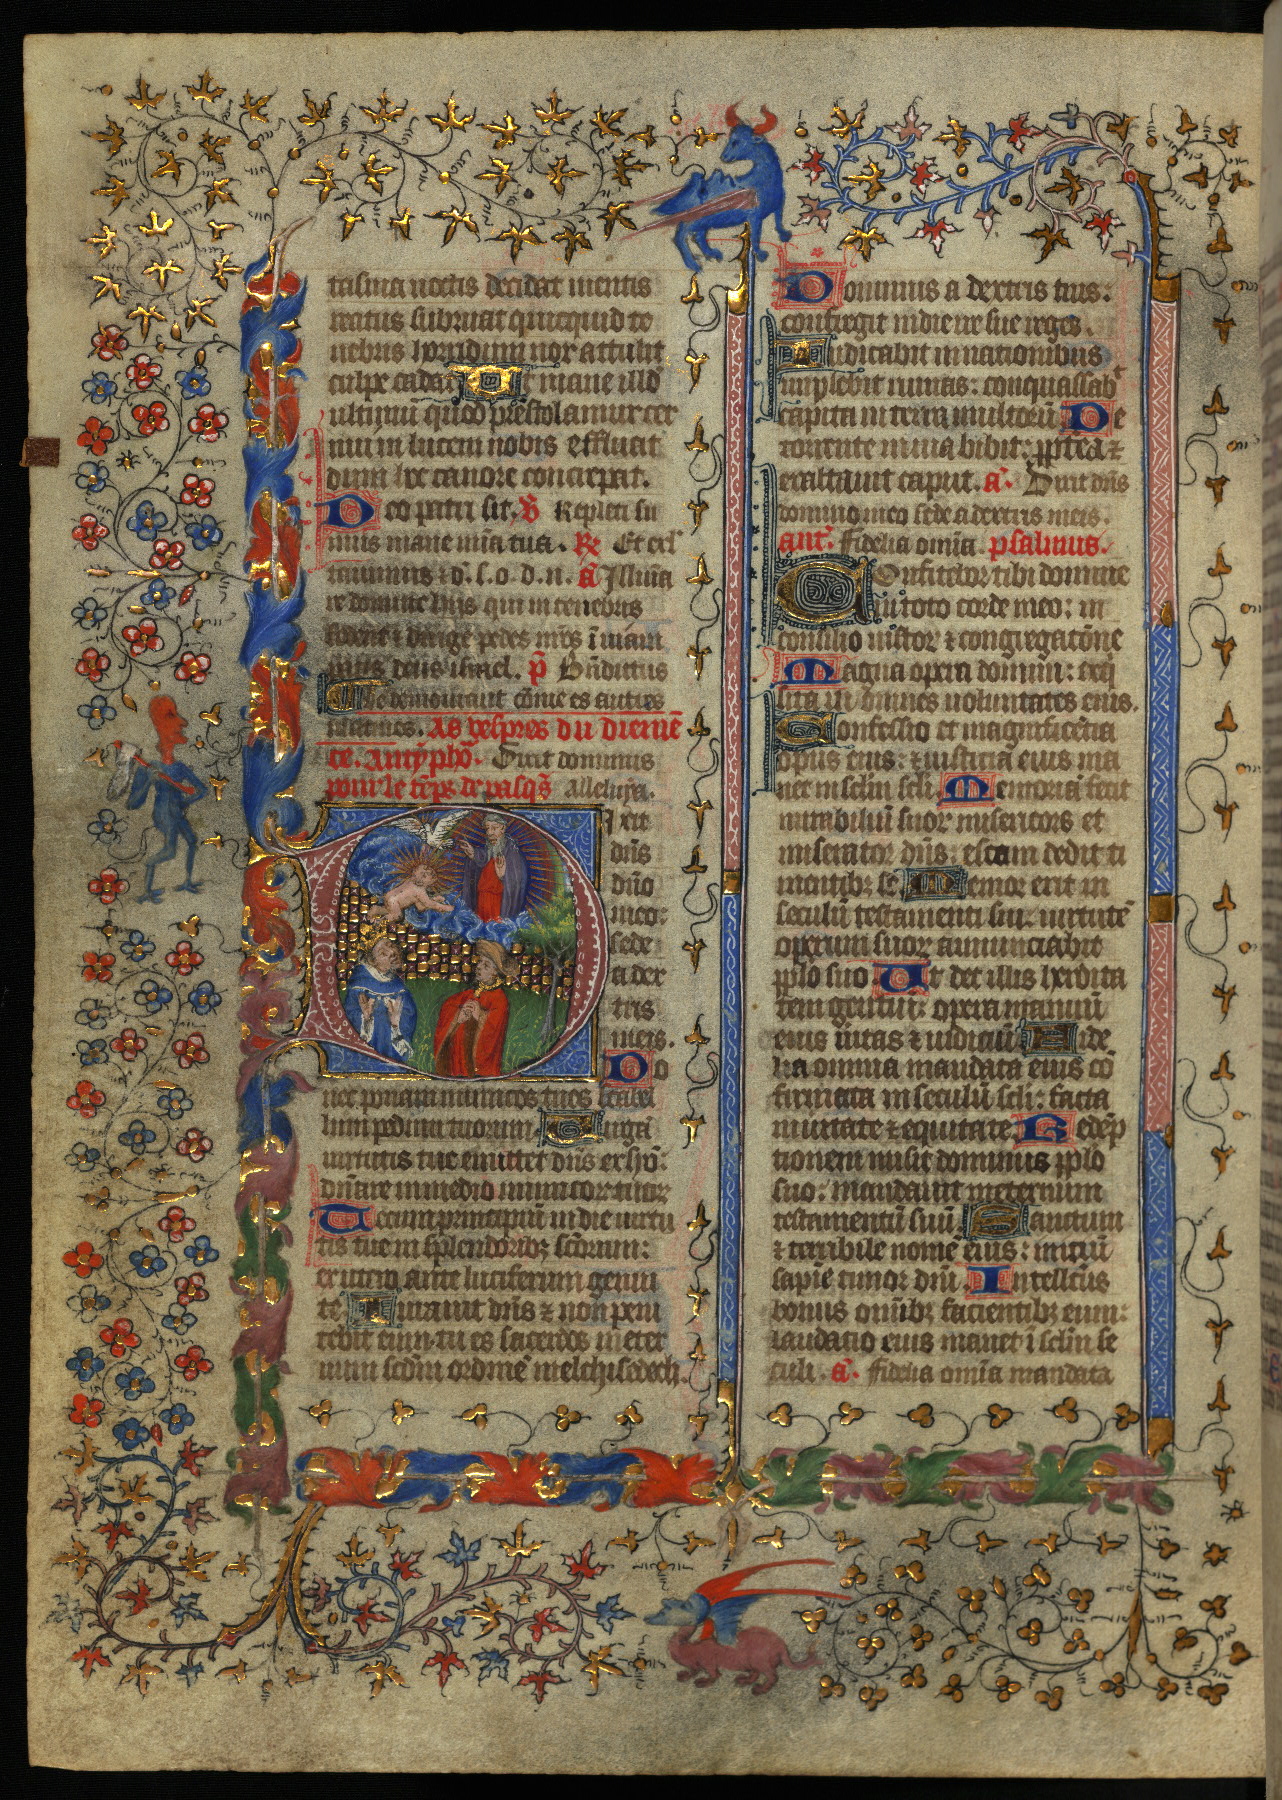 tasma noctis decidat mentis
reatus subruat quicquid te
nebris horridum nox attulit
culpe cadat Ut mane illd
ultimū quod prestolamur cer
nui in lucem nobis effluat
dum hec canore concrepat.
Deo patri sit. V Repleti su
mus mane mīa tua. R Et exl
tauimus & d. s. o. d. n. a Illumīa
re domine hijs qui in tenebris
sedent & dirige pedes nr̄os ī uiam
pacis deus israel. p Bn̄dictus
matines. As vespres du diemē
ce. Antypho. Dixit dominus
pour le tēps de pasqs̄ Alleluya.
Dixit
dn̄s
dn̄o
meo:
sede
a dex
tris
meis.
Do
nec ponam inimicos tuos scabel
lum pedum tuorum. Uirgā
uirtutis tue emittet dn̄s ex syō:
dn̄are in medio inimicor tuor
Tecum principiū in die uirtu
tis tue in splendoribʒ sc̄orum:
ex utero ante luciferum genui
te Iurauit dn̄s & non peni
tebit eum: tu es sacerdos in eter
num scdm ordinē melchisedech.
Dominus a dextris tuis:
confregit in die ire sue reges.
Iudicabit in nationibus
implebit ruinas: conquassabt
capita in terra multorū De
torrente in uia bibit: ꝓpterea
exaltauit caput. a Dixit dn̄s
domino meo sede a dextris meis.
ant. Fidelia omīa psalmus.
Confitebor tibi domine
in toto corde meo: in
consilio iustor & congregatōne
Magna opera domini: exq
sita in omnes uoluntates eius.
Confessio et magnificētia
opus eius: & iusticia eius ma
net in sclm scli Memoriā fecit
mirabiliū suor misericors et
miserator dn̄s: escam dedit ti
mentibʒ se Memor erit in
seculū testamenti sui: uirtutē
operum suor annunciabit
pplo suo. Ut det illis heredita
tem gentiū: opera manuū
eius ūitas & iudiciū Fide
lia omnia mandata eius cō
firmata in seculū scli: facta
in uitate & equitate Redēp
tionem misit dominus pplo
suo: mandauit in eternum
testamentū suū Sanctum
& terribile nomē eius: initiū
sapiē timor dn̄i Intellcūs
bonus om̄ibʒ facientibʒ eum:
laudatio eius manet ī sclm se
culi. a Fidelia omīa mandata